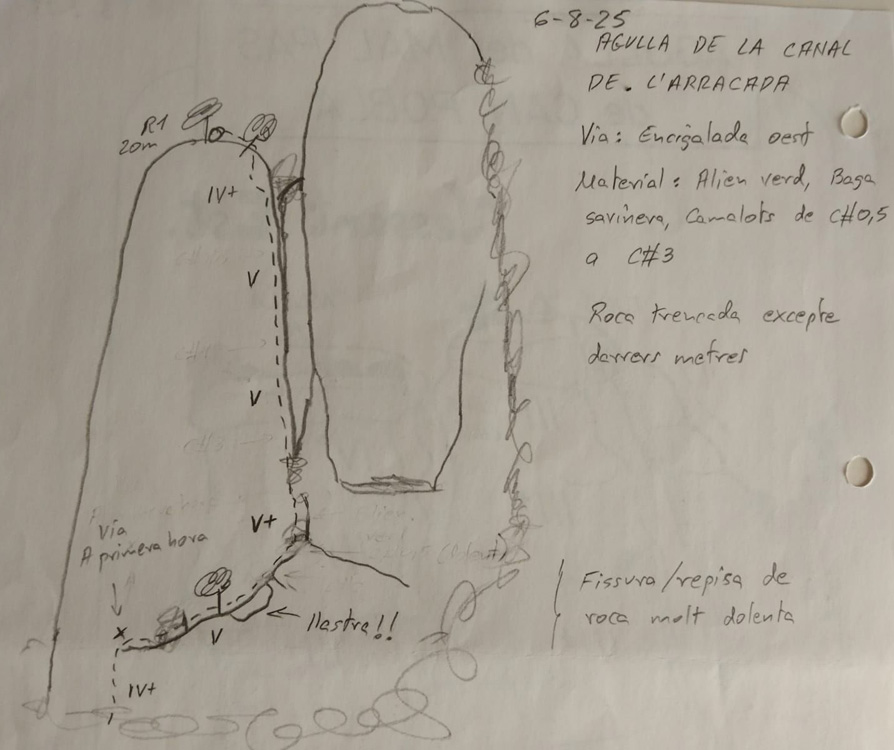 6-8-25
AGULLA DE LA CANAL
DE. L'ARRACADA
Via: Encigalada oest
Material: Alien verd, Baga
savinera, Camalots de C#0,5
a C#3
Roca trencada excepte
darrers metres
R1
20m
IV+
V
V
V+
Via
A primera hora
llastra!!
V
IV+
Fissura/repisa de
roca molt dolenta